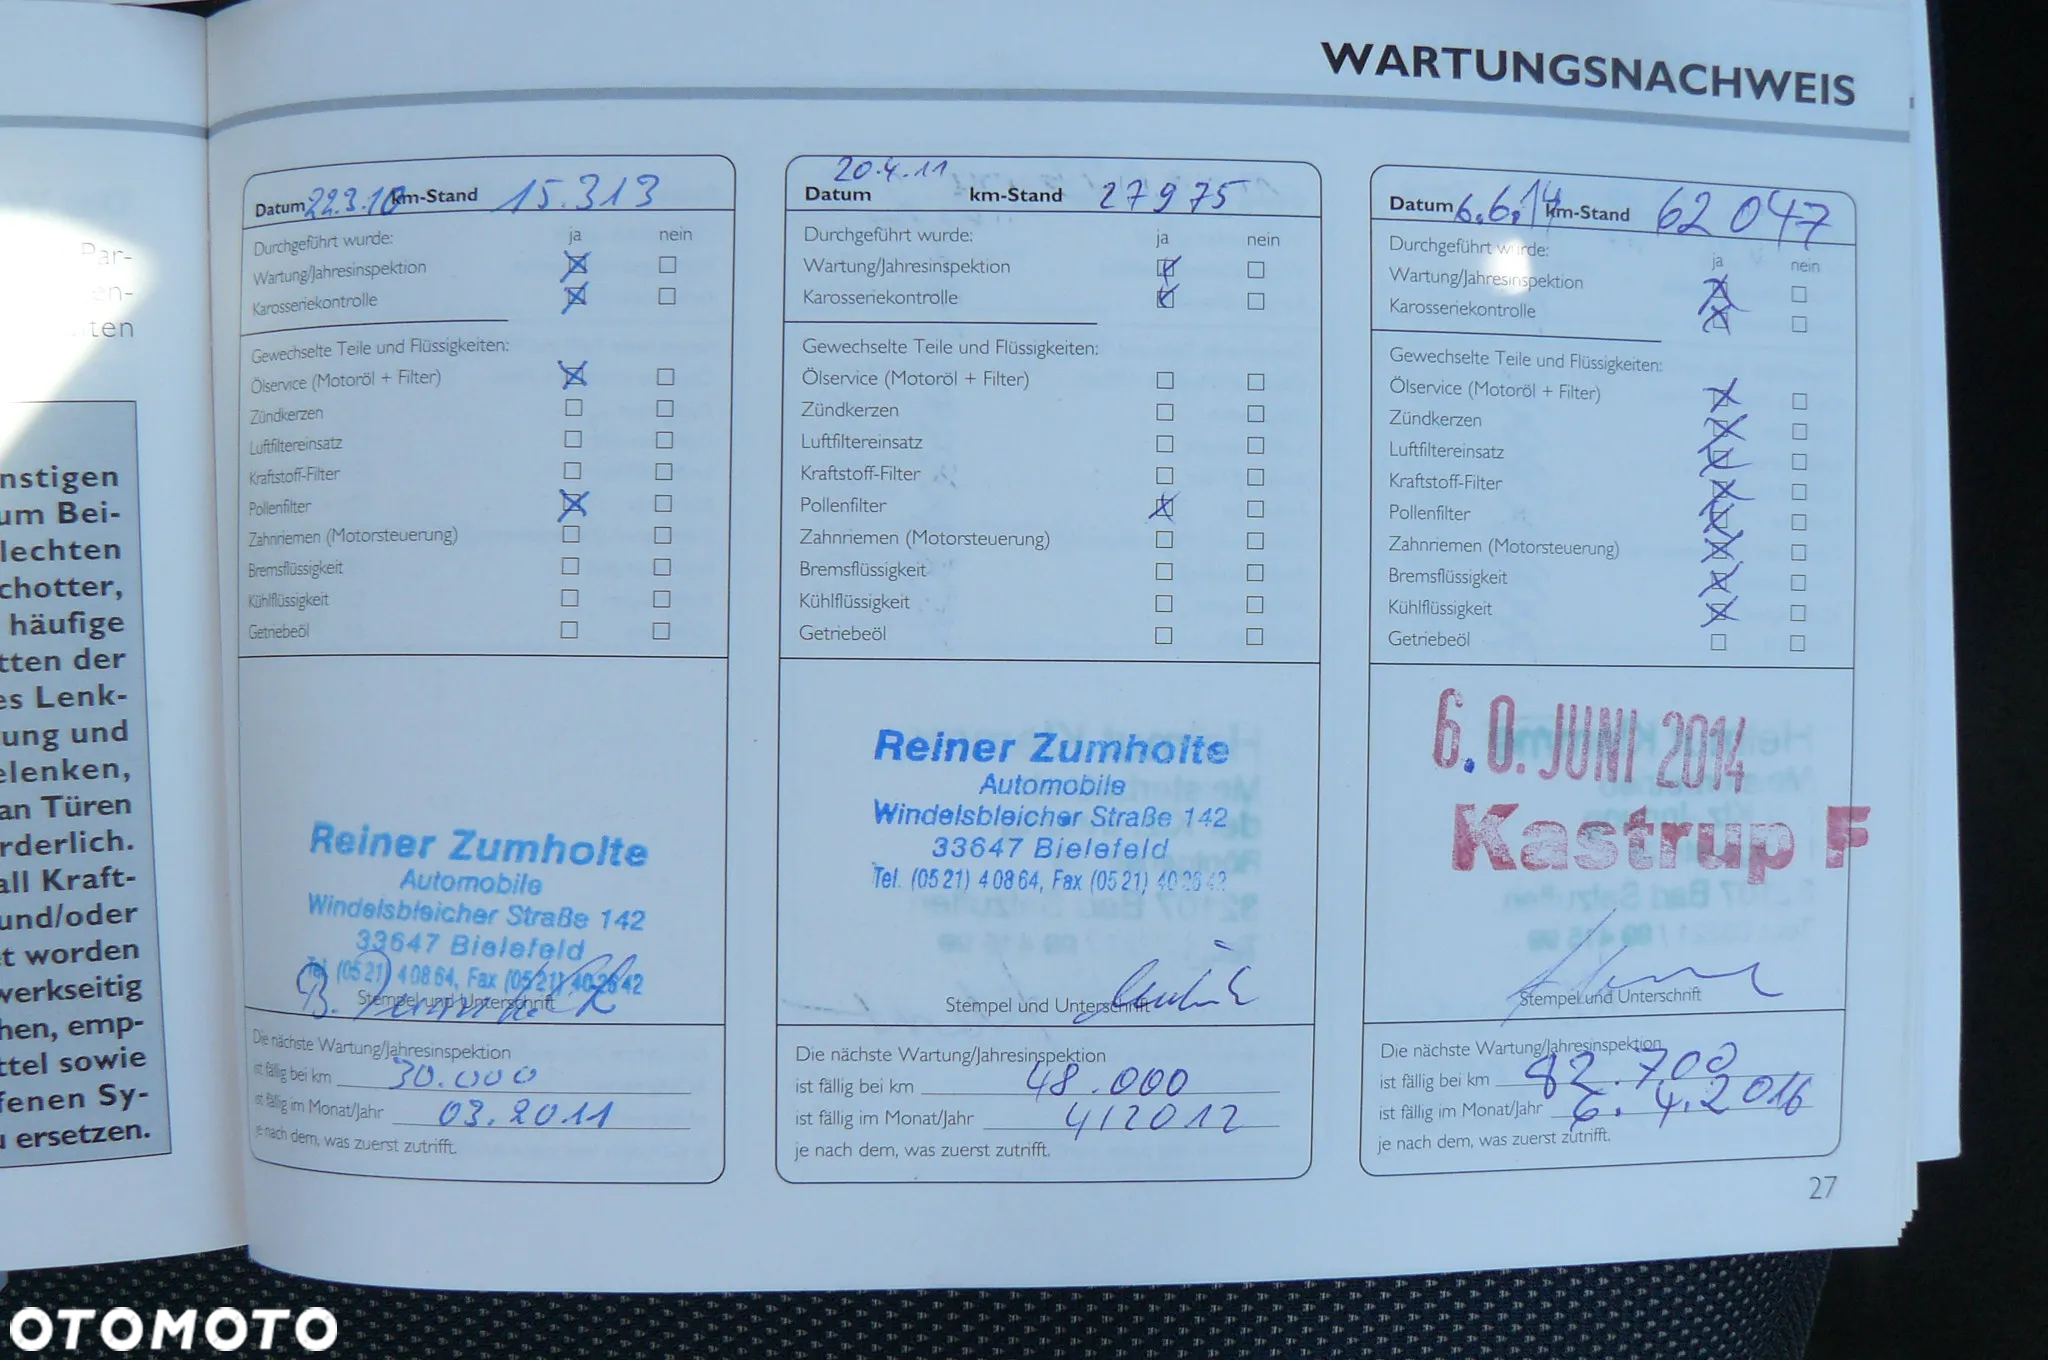 WARTUNGSNACHWEIS
Par-
en-
ten
nstigen
um Bei-
lechten
chotter,
häufige
tten der
es Lenk-
ung und
elenken,
an Türen
rderlich.
all Kraft-
und/oder
t worden
werkseitig
hen, emp-
ttel sowie
fenen Sy-
u ersetzen.
Datum 22.3.10 km-Stand 15.313
Durchgeführt wurde: ja nein
Wartung/Jahresinspektion
Karosseriekontrolle
Gewechselte Teile und Flüssigkeiten:
Ölservice (Motoröl + Filter)
Zündkerzen
Luftfiltereinsatz
Kraftstoff-Filter
Pollenfilter
Zahnriemen (Motorsteuerung)
Bremsflüssigkeit
Kühlflüssigkeit
Getriebeöl
Reiner Zumholte
Automobile
Windelsbleicher Straße 142
33647 Bielefeld
Tel. (05 21) 4 08 64, Fax (05 21) 40 26 42
Stempel und Unterschrift
Die nächste Wartung/Jahresinspektion
ist fällig bei km 30.000
ist fällig im Monat/Jahr 03.2011
je nach dem, was zuerst zutrifft.
20.4.11
Datum km-Stand 27975
Durchgeführt wurde: ja nein
Wartung/Jahresinspektion
Karosseriekontrolle
Gewechselte Teile und Flüssigkeiten:
Ölservice (Motoröl + Filter)
Zündkerzen
Luftfiltereinsatz
Kraftstoff-Filter
Pollenfilter
Zahnriemen (Motorsteuerung)
Bremsflüssigkeit
Kühlflüssigkeit
Getriebeöl
Reiner Zumholte
Automobile
Windelsbleicher Straße 142
33647 Bielefeld
Tel. (05 21) 4 08 64, Fax (05 21) 40 26 42
Stempel und Unterschrift
Die nächste Wartung/Jahresinspektion
ist fällig bei km 48.000
ist fällig im Monat/Jahr 4/2012
je nach dem, was zuerst zutrifft.
Datum 6.6.14 km-Stand 62047
Durchgeführt wurde: ja nein
Wartung/Jahresinspektion
Karosseriekontrolle
Gewechselte Teile und Flüssigkeiten:
Ölservice (Motoröl + Filter)
Zündkerzen
Luftfiltereinsatz
Kraftstoff-Filter
Pollenfilter
Zahnriemen (Motorsteuerung)
Bremsflüssigkeit
Kühlflüssigkeit
Getriebeöl
6.0. JUNI 2014
Kastrup F
Stempel und Unterschrift
Die nächste Wartung/Jahresinspektion
ist fällig bei km 82.700
ist fällig im Monat/Jahr 6.4.2016
je nach dem, was zuerst zutrifft.
27
OTOMOTO